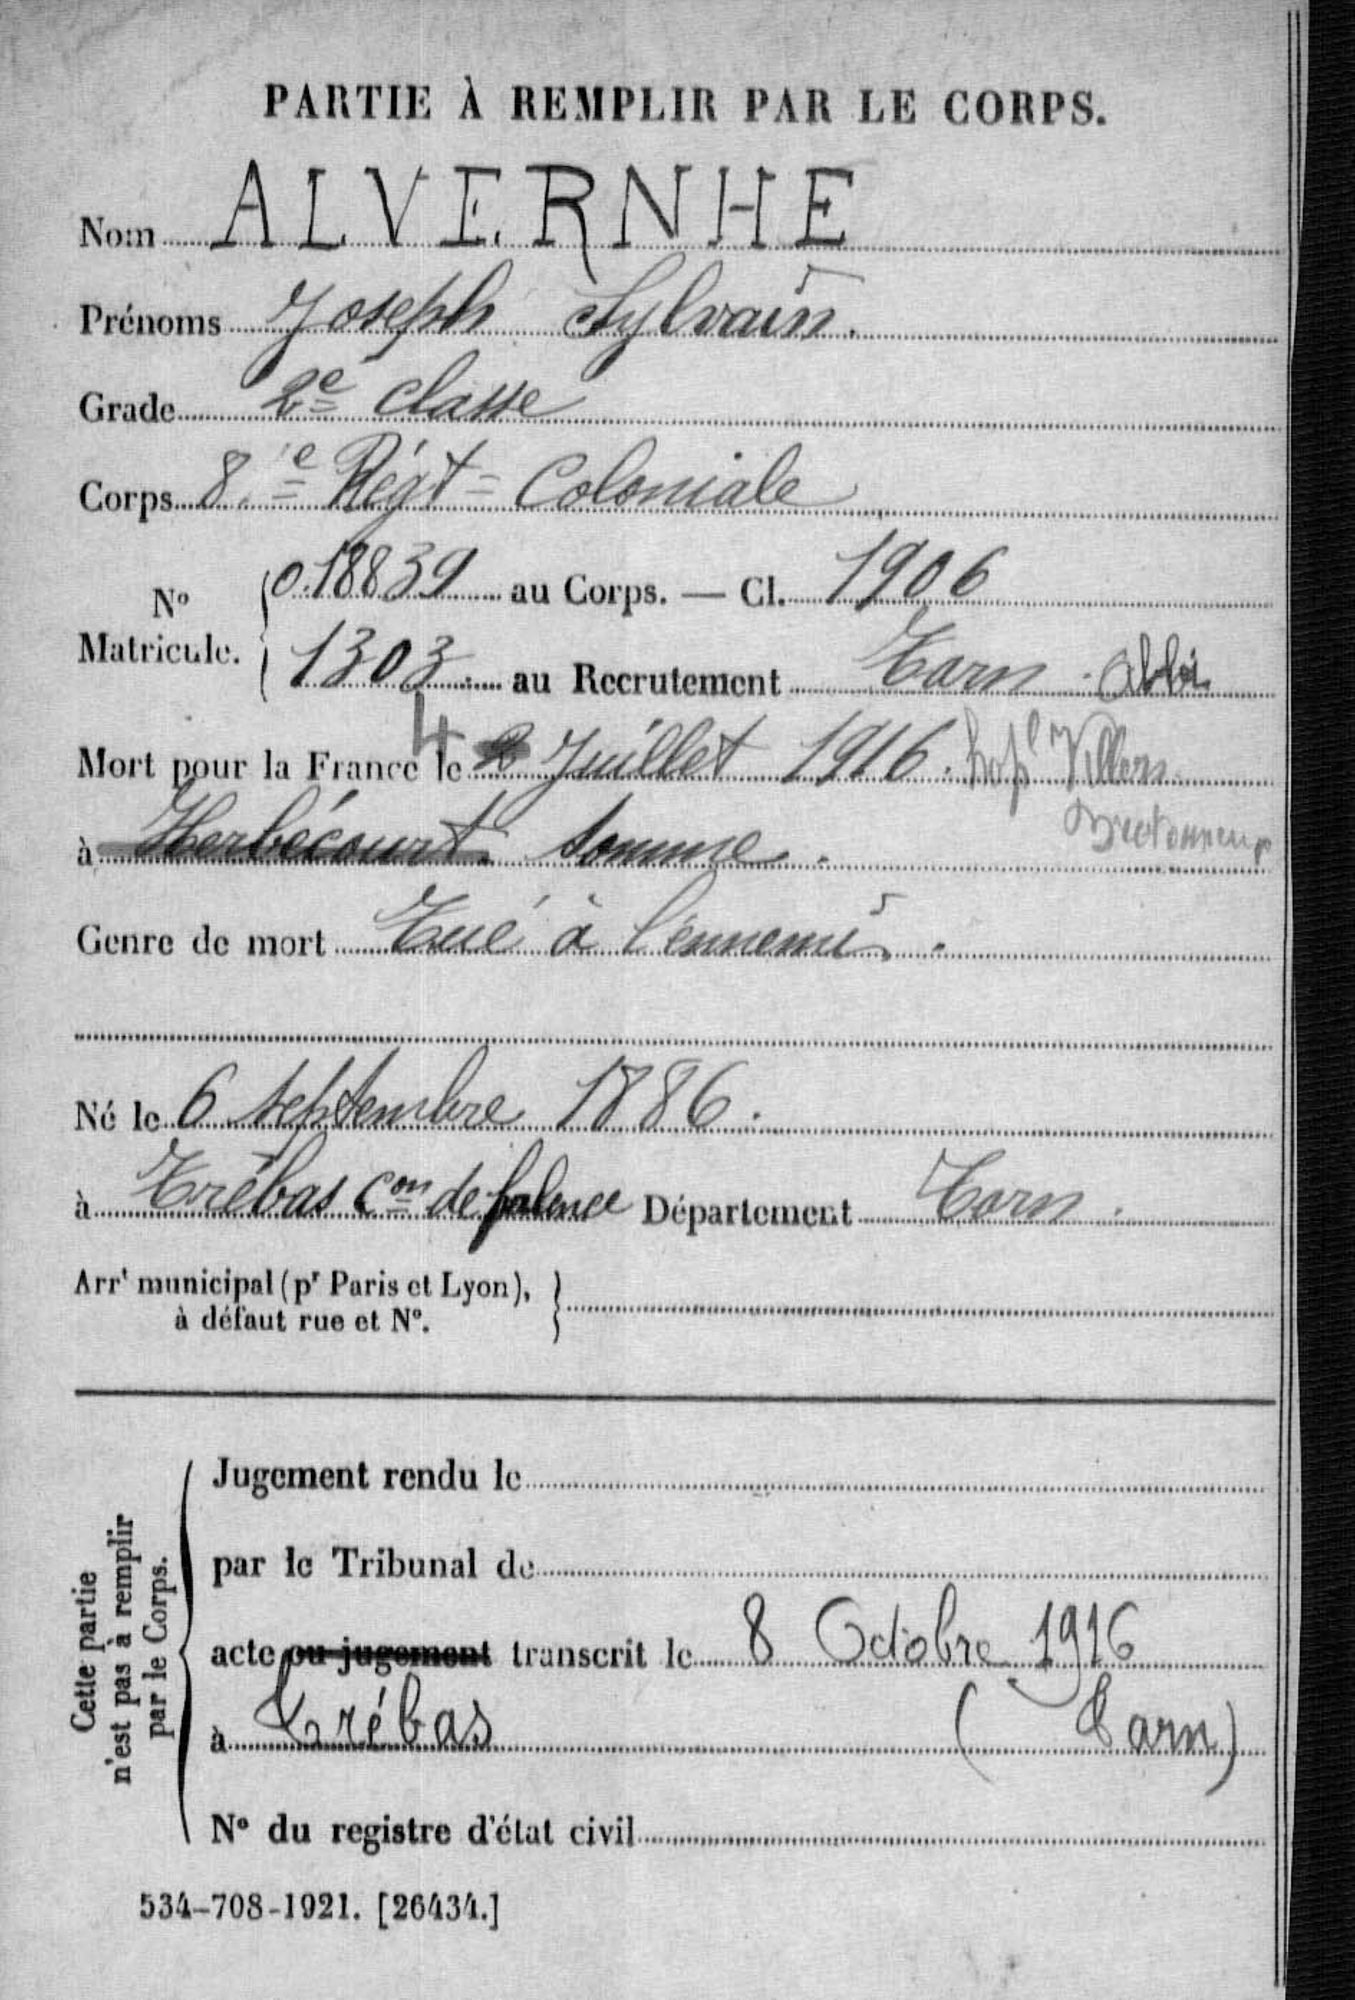 PARTIE À REMPLIR PAR LE CORPS.
Nom ALVERNHE
Prénoms Joseph Sylvain.
Grade 2e classe
Corps 8.e Régt Coloniale
No Matricule. 0.18839 au Corps. — Cl. 1906
1303. au Recrutement Tarn. Albi
Mort pour la France le 4 Juillet 1916. hopl Villers
Bretonneux
à Herbécourt Somme.
Genre de mort Tué à l'ennemi.
Né le 6 septembre 1886.
à Trébas Con de Valence Département Tarn.
Arrt municipal (pr Paris et Lyon),
à défaut rue et No.
Cette partie
n'est pas à remplir
par le Corps.
Jugement rendu le
par le Tribunal de
acte ou jugement transcrit le 8 Octobre 1916
à Trébas (Tarn)
No du registre d'état civil
534-708-1921. [26434.]